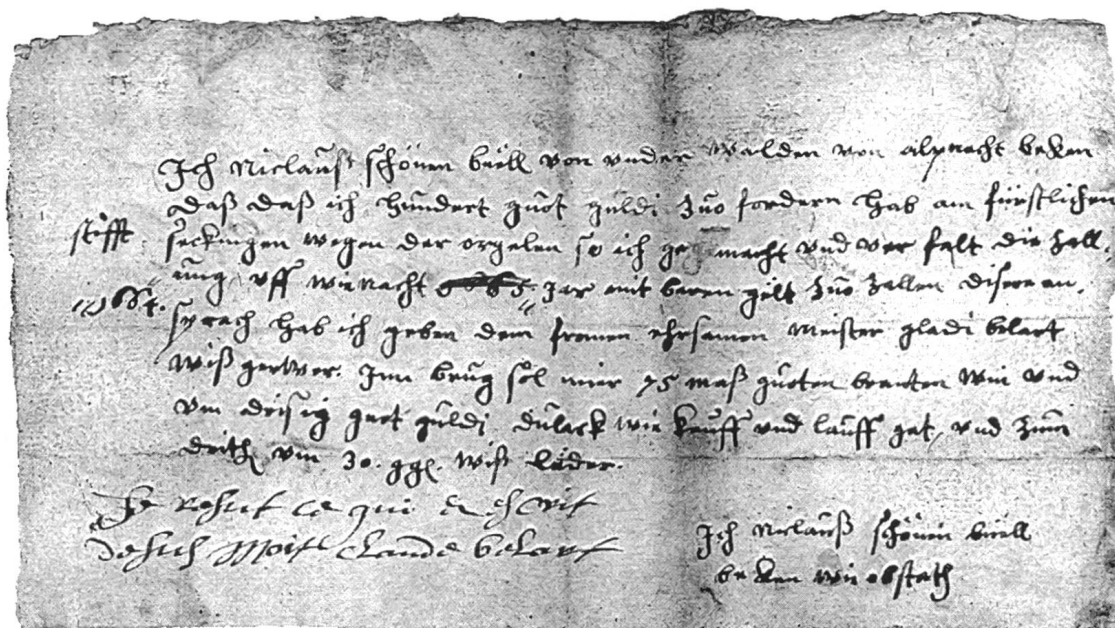 Ich Niclauß schönen büell von vnder walden von alpnacht beken
daß daß ich hundert guot guldi zuo fordern hab am fürstlichen
stifft seckingen wegen der orgelen so ich ge macht vnd ver falt die zall,
ung vff wienacht jar mit baren gelt zuo zallen disere an,
1664.
sprach hab ich geben dem fromen ehrsamen Meister gladi belart
wiß gerwer. Inn brug sol mier 75 maß guoten branten win vnd
vm drisig guot guldi wie kauff vnd lauff gat, vnd zum
drith vm 30. ggl. wiß läder.
Je ce qui escrit
desus moi Claude belart
Ich Niclauß schönen büell
be ken wie obstath